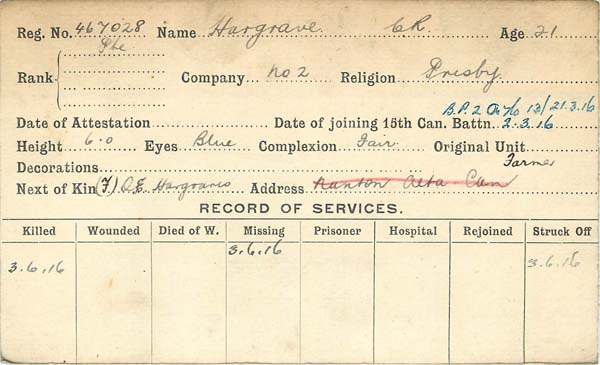 Reg. No. 467028 Name Hargrave C.R. Age 21
Pte
Rank Company No 2 Religion Presby.
B.P. 2 O. No 13/21.3.16
Date of Attestation Date of joining 15th Can. Battn. 2.3.16
Height 6.0 Eyes Blue Complexion Fair Original Unit
Decorations Farmer
Next of Kin (F) Hargraves Address Nanton Alta Can
RECORD OF SERVICES.
Killed Wounded Died of W. Missing Prisoner Hospital Rejoined Struck Off
3.6.16 3.6.16 3.6.16